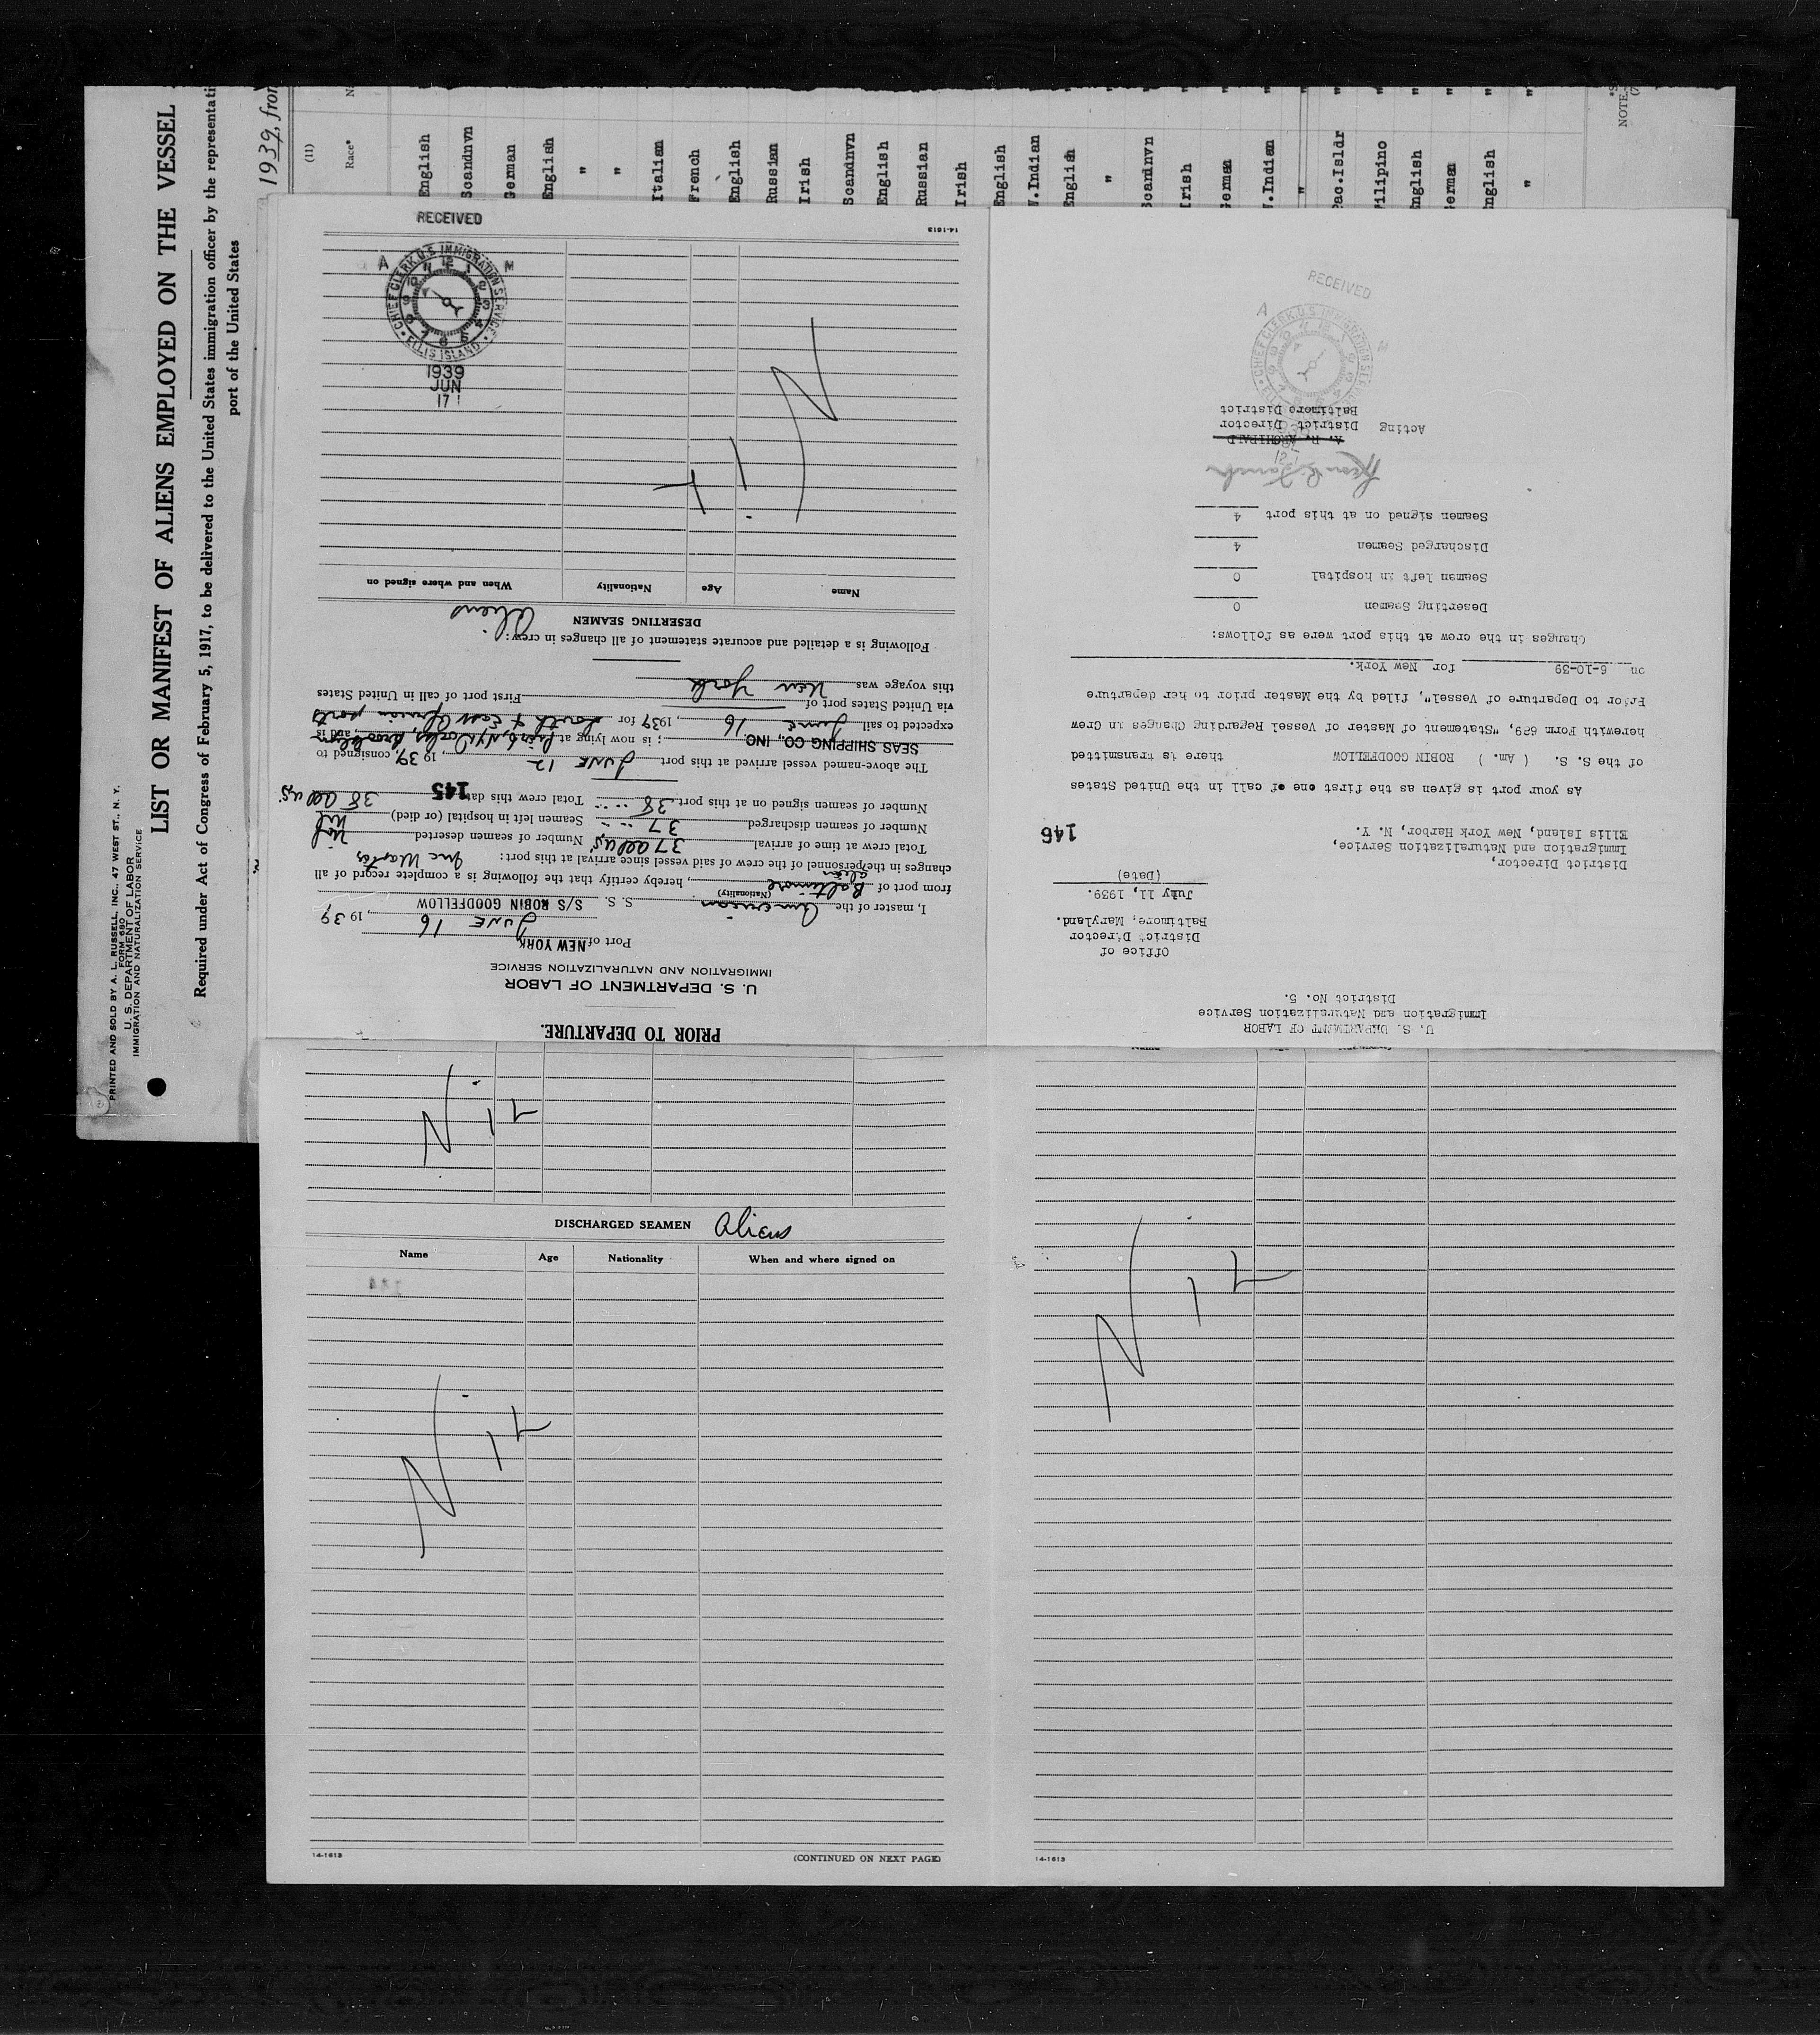 PRINTED AND SOLD BY A. L. RUSSELL, INC., 47 WEST ST., N. Y.
FORM 680
U. S. DEPARTMENT OF LABOR
IMMIGRATION AND NATURALIZATION SERVICE
LIST OR MANIFEST OF ALIENS EMPLOYED ON THE VESSEL
Required under Act of Congress of February 5, 1917, to be delivered to the United States immigration officer by the representati
port of the United States
1939, from
(11)
Race*
English
Scandnvn
German
English
"
"
Italian
French
English
Russian
Irish
Scandnvn
English
Russian
Irish
English
W.Indian
English
"
Scaninvn
Irish
German
W.Indian
"
Pac.Isldr
Filipino
English
German
English
"
NOTE.
PRIOR TO DEPARTURE.
U. S. DEPARTMENT OF LABOR
IMMIGRATION AND NATURALIZATION SERVICE
Port of NEW YORK
JUNE 16, 1939
I, master of the American S. S. S/S ROBIN GOODFELLOW
(Nationality)
from port of Baltimore, hereby certify that the following is a complete record of all
alien
changes in the personnel of the crew of said vessel since arrival at this port:
Total crew at time of arrival 37 all us Number of seamen deserted Nil
Number of seamen discharged 37 " " Seamen left in hospital (or died) Nil
Number of seamen signed on at this port 38 " " Total crew this date 38 all us
145
The above-named vessel arrived at this port JUNE 12, 1939, consigned to
SEAS SHIPPING CO., INC. ; is now lying at Pier 6, Brooklyn, and is
expected to sail June 16, 1939 for South & East African ports
via United States port of
this voyage was New York First port of call in United States
Following is a detailed and accurate statement of all changes in crew:
DESERTING SEAMEN Aliens
Name Age Nationality When and where signed on
Nil
14-1613
RECEIVED
A M
CHIEF CLERK U.S. IMMIGRATION SERVICE
ELLIS ISLAND
1939
JUN
17
U. S. DEPARTMENT OF LABOR
Immigration and Naturalization Service
District No. 5.
Office of
District Director
Baltimore, Maryland.
July 11, 1939.
(Date)
District Director,
Immigration and Naturalization Service,
Ellis Island, New York Harbor, N. Y.
146
As your port is given as the first one of call in the United States
of the S. S. ( Am. ) ROBIN GOODFELLOW there is transmitted
herewith Form 689, "Statement of Master of Vessel Regarding Changes in Crew
Prior to Departure of Vessel", filed by the Master prior to her departure
on 6-10-39 for New York.
Changes in the crew at this port were as follows:
Deserting Seamen 0
Seamen left in hospital 0
Discharged Seamen 4
Seamen signed on at this port 4
A. R. ARCHIBALD
Acting District Director
Baltimore District
RECEIVED
A M
CHIEF CLERK U.S. IMMIGRATION SERVICE
Nil
DISCHARGED SEAMEN Aliens
Name Age Nationality When and where signed on
Nil
14-1613
(CONTINUED ON NEXT PAGE)
Nil
14-1613